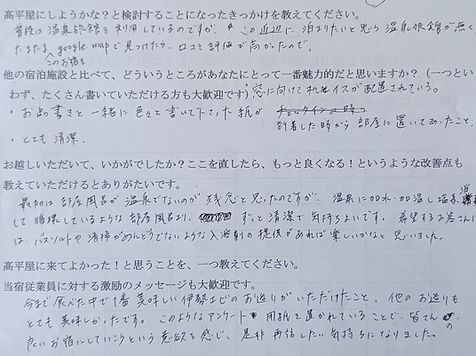 髙平屋にしようかな？と検討することになったきっかけを教えてください。
普段は温泉旅館を利用しているのですが、この近辺に泊まりたいと思う温泉旅館が無く
たまたま google mapで見つけたら、口コミ評価が高かったので。
このお宿を
他の宿泊施設と比べて、どういうところがあなたにとって一番魅力的だと思いますか？（一つとい
わず、たくさん書いていただける方も大歓迎です）窓に向けてイスが配置されている。
・お品書きと一緒に色々と書いて下さった紙が
到着した時から部屋に置いてあったこと。
・とても清潔。
お越しいただいて、いかがでしたか？ここを直したら、もっと良くなる！というような改善点も
教えていただけるとありがたいです。
最初は部屋風呂が温泉でないのが残念と思ったのですが、温泉に加水・加温し塩素
して循環しているような部屋風呂より、ずっと清潔で気持ちよいです。希望するお客さんに
は、バスソルトや清掃がめんどうでないような入浴剤の提供があれば楽しいかなと思いました。
髙平屋に来てよかった！と思うことを、一つ教えてください。
当宿従業員に対する激励のメッセージも大歓迎です。
今まで食べた中で1番美味しい伊勢エビのお造りがいただけたこと、他のお造りも
とても美味しかったです。このようなアンケート用紙を置かれていることで、皆さんの
良いお宿にしていこうという意欲を感じ、是非再訪したい気持ちになりました。